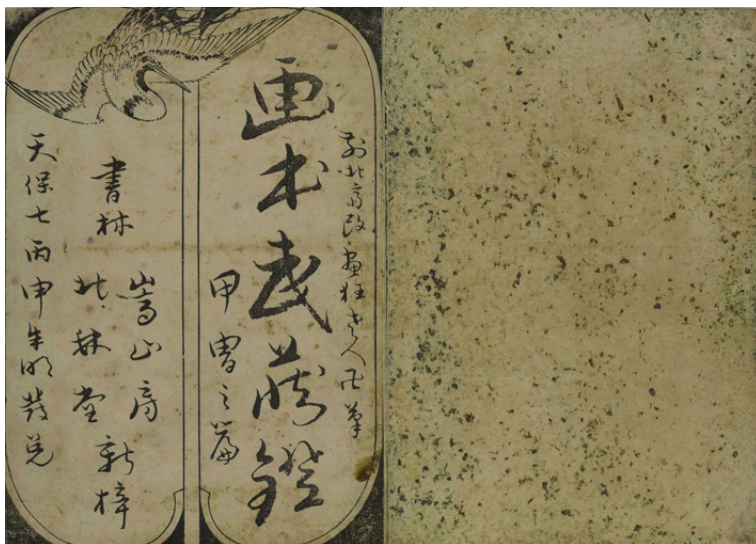 前北斎改画狂老人卍筆
画本武蔵鐙
甲冑之篇
書林
嵩山房
北林堂
新梓
天保七丙申年明発兌